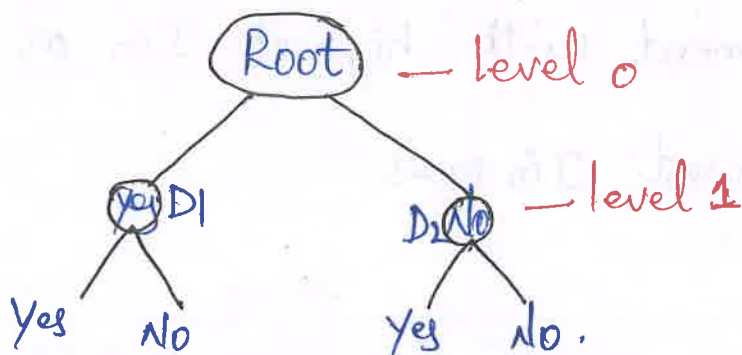 Root — level 0
Yes D1
D2 No — level 1
Yes No Yes No.